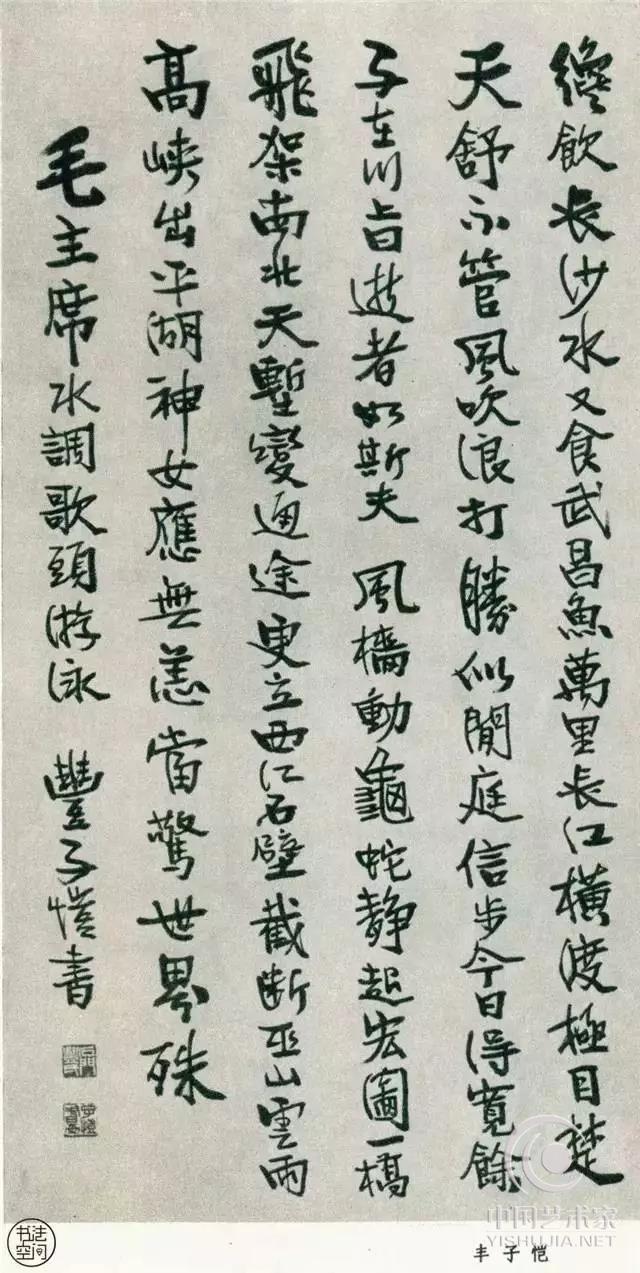 纔飲長沙水又食武昌魚萬里長江橫渡極目楚
天舒不管風吹浪打勝似閒庭信步今日得寬餘
子在川上曰逝者如斯夫 風檣動龜蛇靜起宏圖一橋
飛架南北天塹變通途更立西江石壁截斷巫山雲雨
高峽出平湖神女應無恙當驚世界殊
毛主席水調歌頭游泳 豐子愷書
书法
空间
中国艺术家
YISHUJIA.NET
丰子恺